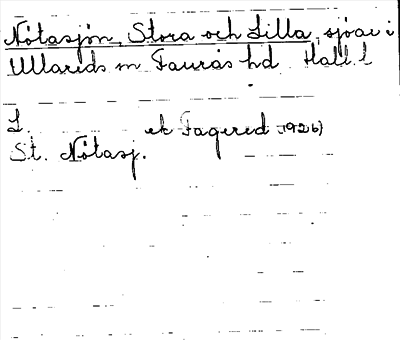 Nötasjön, Stora och Lilla, sjöar i
Ullareds sn Faurås hd Hall. l
L. ek Fagered 1926)
St. Nötasj.